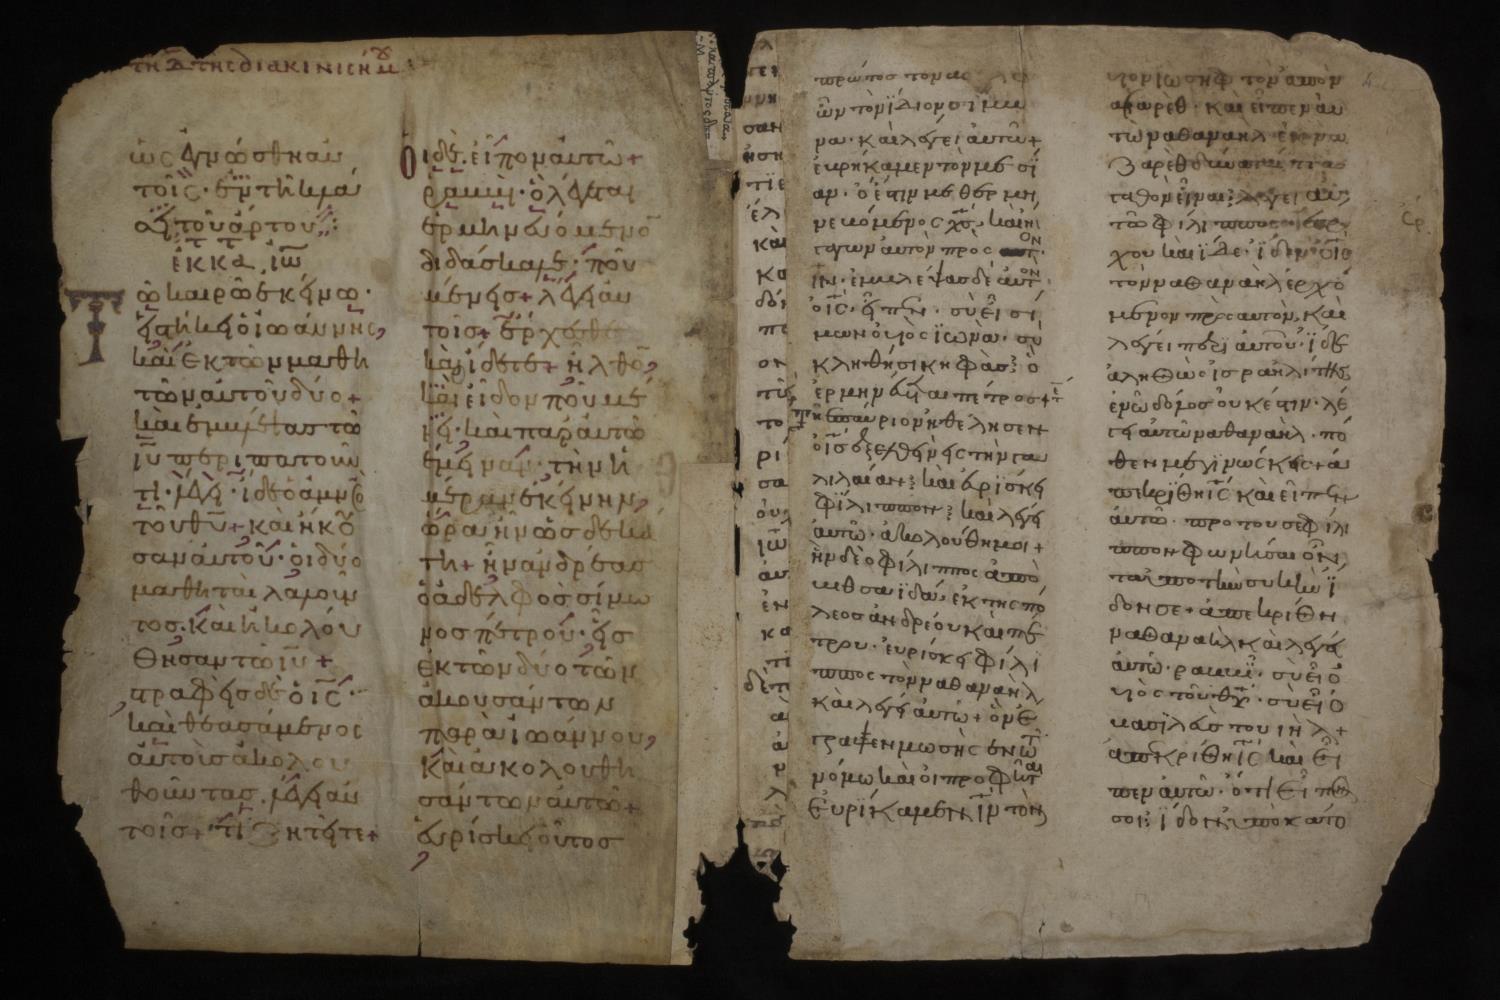 τη Δ της διακινισήμου
ὡς ἐγνώσθη αὐ
τοῖς· ἐν τῆ κλά
σει τοῦ ἄρτου:
ἐκ κατ ιω
τῶ καιρῶ ἐκείνω·
εἱστήκει ὁ ἰωάννης,
καὶ ἐκ τῶν μαθη
τῶν αὐτοῦ δύο+
καὶ ἐμβλέψας τῶ
ιυ περιπατοῦν
τι· λέγει· ἴδε ὁ ἀμνὸ
τοῦ θυ+ καὶ ἤκου
σαν αὐτοῦ· οἱ δύο
μαθηταὶ λαλοῦν
τος· καὶ ἠκολού
θησαν τῶ ιυ+
στραφεὶς δὲ ὁ ις·
καὶ θεασάμενος
αὐτοὺς ἀκολου
θοῦντας· λέγει αὐ
τοῖς+ τί ζητεῖτε+
Οἱ δὲ εἶπον αὐτῶ+
ῥαββὶ· ὃ λέγεται
ἑρμηνευόμενο
διδάσκαλε· ποῦ
μένεις+ λέγει αὐ
τοῖς+ ἔρχεσθε
καὶ ἴδετε+ ἦλθο,
καὶ εἶδον ποῦ μέ
νει· καὶ παρ' αὐτῶ
ἔμειναν· τὴν ἡ
μέραν ἐκείνην,
ὥρα ἦν ὡς δεκά
τη+ ἦν ἀνδρέας
ὁ ἀδελφὸς σίμω
νος πέτρου· εἷς
ἐκ τῶν δύο τῶν
ἀκουσάντων
παρὰ ἰωάννου,
καὶ ἀκολουθη
σάντων αὐτῶ+
εὑρίσκει οὗτος
πρῶτος τὸν ἀδελ
φὸν τὸν ἴδιον σίμω
να· καὶ λέγει αὐτῶ+
εὑρήκαμεν τὸν μεσσί
αν· ὅ ἐστιν μεθερμη
νευόμενος χς· καὶ ἤ
γαγων αὐτὸν πρὸς τον
ιν· ἐμβλέψας δὲ αὐτον
ὁ ις· εἶπεν· σὺ εἶ σί
μων ὁ υἱὸς ἰωνᾶ· σὺ
κληθήσι κηφᾶς· ὃ
ἑρμηνεύεται πέτρος+
τῆ ἐπαύριον ἠθέλησεν
ὁ ις ἐξελθεῖν εἰς τὴν γα
λιλαίαν· καὶ εὑρίσκει
φίλιππον· καὶ λέγει
αὐτῶ· ἀκολούθη μοι+
ἦν δὲ ὁ φίλιππος ἀπὸ
βηθσαϊδὰ· ἐκ της πό
λεος ἀνδρέου καὶ πέ
τρου· εὑρίσκει φίλι
ππος τὸν ναθαναὴλ
καὶ λέγει αὐτῶ+ ὃν ἔ
γραψεν μωσῆς ἐν τῶ
νόμω καὶ οἱ προφῆται
εὑρίκαμεν ιν τὸν
υἱὸν ἰωσὴφ τὸν ἀπὸ ν
αζαρέθ· καὶ εἶπεν αὐ
τῶ ναθαναὴλ ἐκ να
ζαρὲθ δύναταί τι α
γαθὸν εἶναι· λέγει αὐ
τῶ φίλιππος· ἔρ
χου καὶ ἴδε· ἴδεν ὁ ις
τὸν ναθαναὴλ ἐρχό
μενον πρὸς αὐτὸν, καὶ
λέγει περὶ αὐτοῦ· ἴδε
ἀληθῶς ἰσραηλίτης
ἐν ὧ δόλος οὐκ ἔστιν· λέ
γει αὐτῶ ναθαναὴλ· πό
θεν με γινώσκεις+ ἀ
πεκρίθη ις καὶ εἶπεν
αὐτῶ· πρὸ του σε φίλι
ππον φωνῆσαι ὄν
τα ὑπὸ τὴν συκῆν ἴ
δον σε+ ἀπεκρίθη
ναθαναὴλ καὶ λέγει
αὐτῶ· ραββὶ· σὺ εἶ ὁ
υἱὸς τοῦ θυ· σὺ εἶ ὁ
βασιλεὺς του ιηλ+
ἀπεκρίθη ις καὶ εἶ
πεν αὐτῶ· ὅτι εἶπον
σοι· ἴδον σε ὑποκάτο